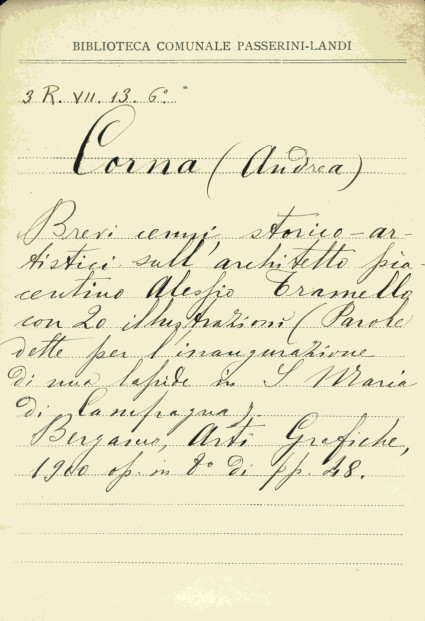 BIBLIOTECA COMUNALE PASSERINI-LANDI
3 R. VII. 13. 6°
Corna (Andrea)
Brevi cenni storico-ar-
tistici sull'architetto pia-
centino Alessio Tramello
con 20 illustrazioni (Parole
dette per l'inaugurazione
di una lapide in S. Maria
di Campagna).
Bergamo, Arti Grafiche,
1900 op. in 8° di pp. 48.